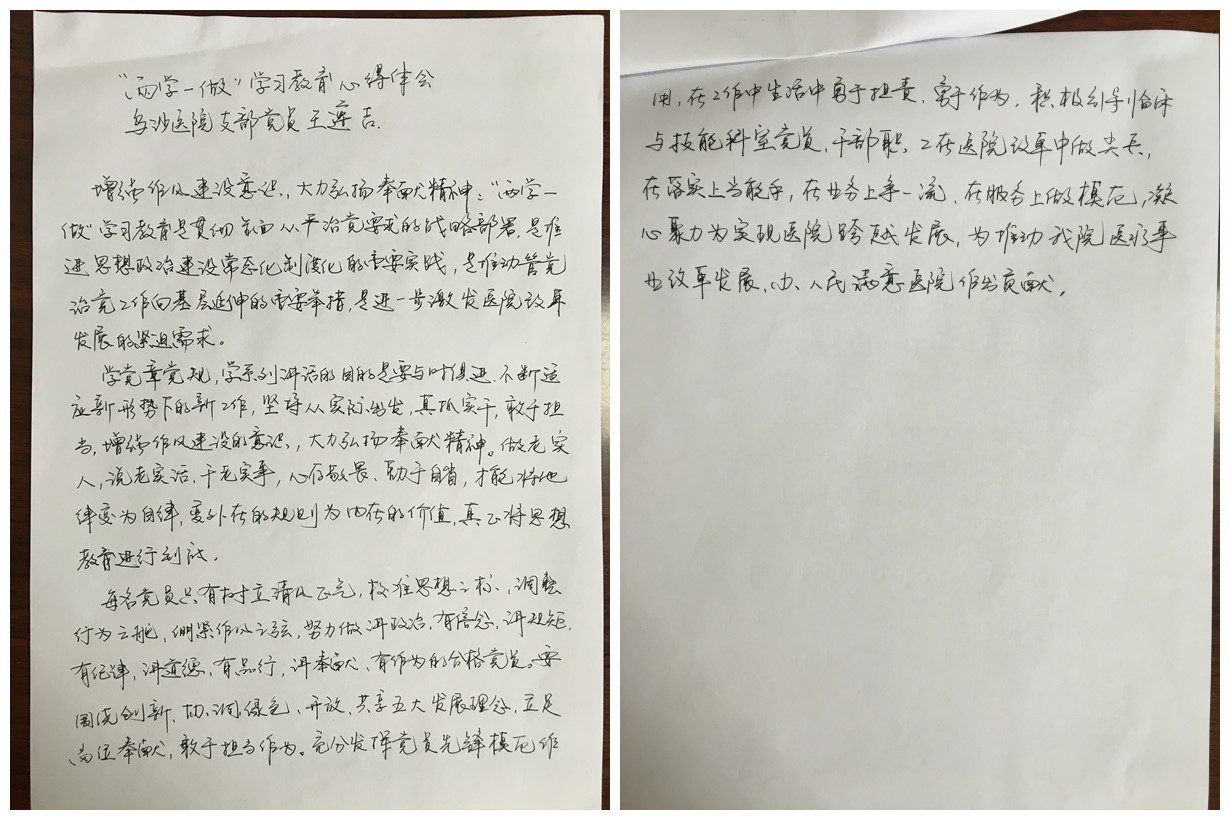 “两学一做”学习教育心得体会
乌沙医院支部党员王莲吉.
增强作风建设意识，大力弘扬奉献精神：“两学一
做”学习教育是贯彻全面从严治党要求的战略部署，是推
进思想政治建设常态化制度化的重要实践，是推动管党
治党工作向基层延伸的重要举措，是进一步激发医院改革
发展的紧迫需求。
学党章党规，学系列讲话的目的是要与时俱进.不断适
应新形势下的新工作，坚持从实际出发，真抓实干，敢于担
当，增强作风建设的意识，大力弘扬奉献精神。做老实
人，说老实话，干老实事，心存敬畏、勤于自省，才能将他
律变为自律，变外在的规则为内在的价值，真正将思想
教育进行到底。
每名党员只有树立清风正气，校准思想之标，调整
行为之舵，绷紧作风之弦，努力做讲政治，有信念，讲规矩.
有纪律，讲道德，有品行，讲奉献、有作为的合格党员。要
围绕创新、协调、绿色、开放、共享五大发展理念，立足
岗位奉献，敢于担当作为。充分发挥党员先锋模范作
用，在工作中生活中勇于担责、勇于作为，积极引导临床
与技能科室党员，干部职工在医院改革中做尖兵，
在落实上当能手，在业务上争一流、在服务上做模范，凝
心聚力为实现医院跨越发展，为推动我院医疗事
业改革发展、办人民满意医院作出贡献。